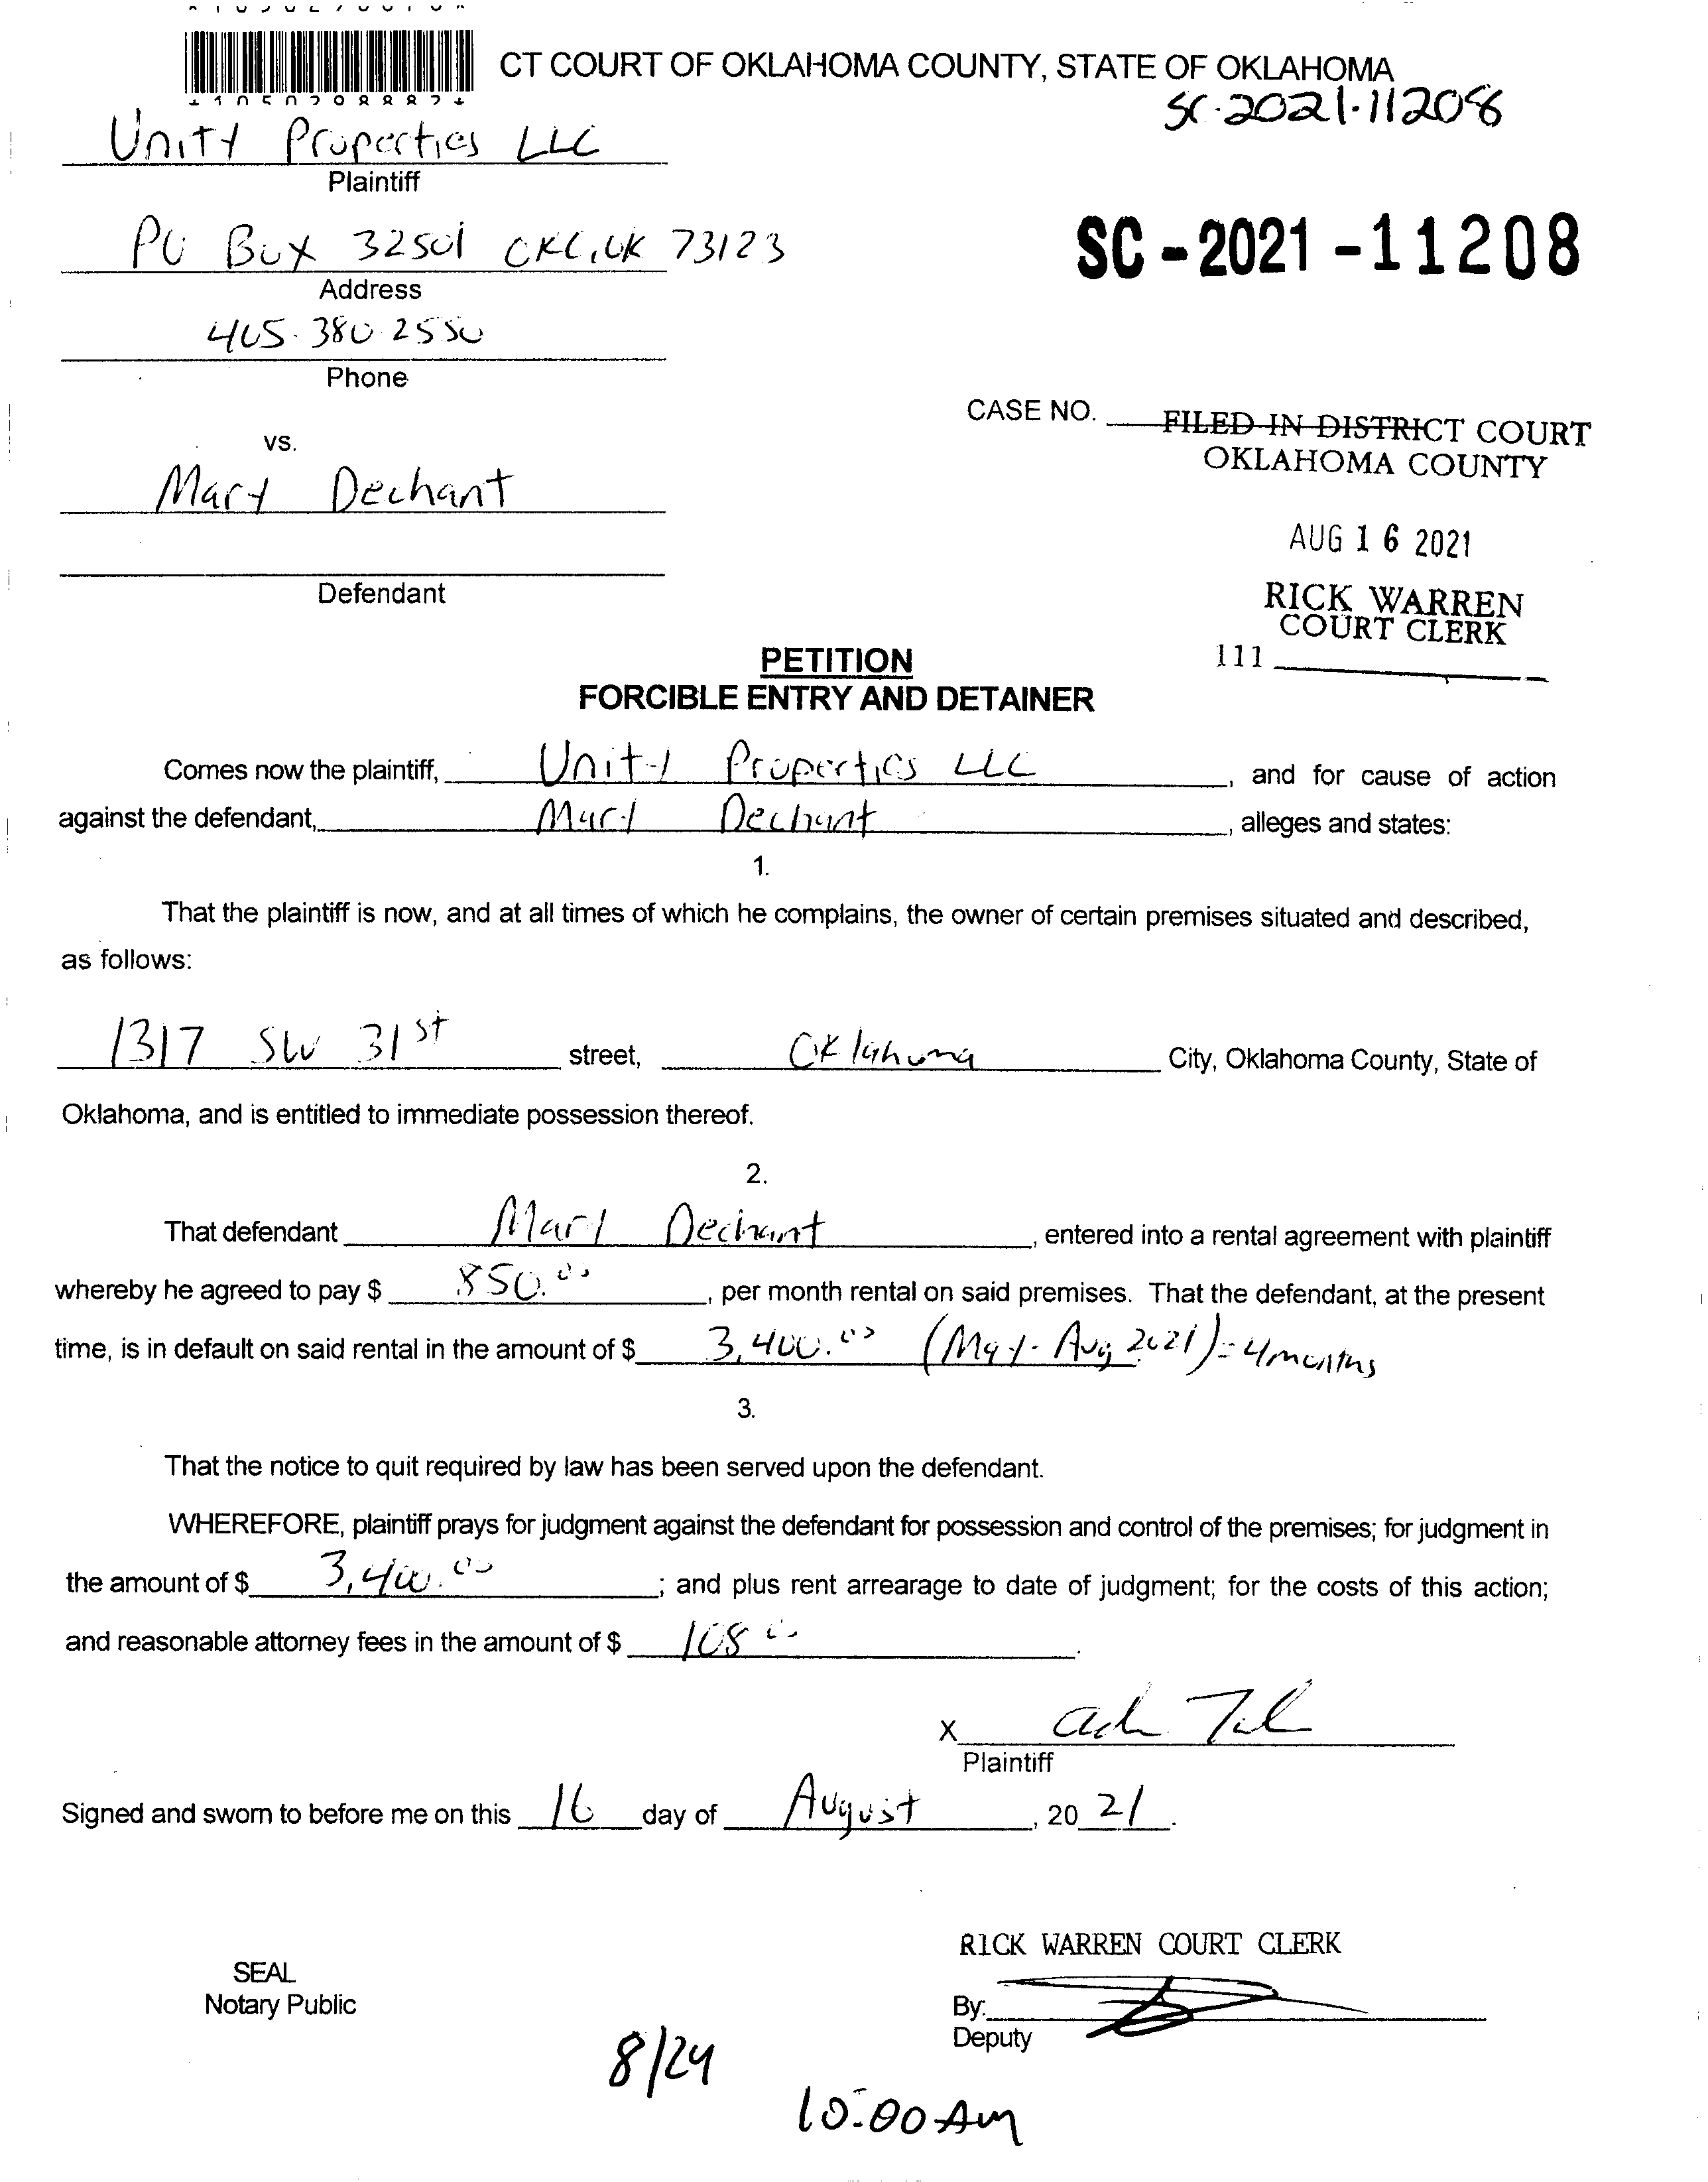 CT COURT OF OKLAHOMA COUNTY, STATE OF OKLAHOMA
SC-2021-11208
Unity Properties LLC
Plaintiff
PO Box 32501 OKC, OK 73123
SC-2021-11208
Address
405-380-2550
Phone
CASE NO.
FILED IN DISTRICT COURT
OKLAHOMA COUNTY
vs.
Mary Dechant
AUG 16 2021
Defendant
RICK WARREN
COURT CLERK
111
PETITION
FORCIBLE ENTRY AND DETAINER
Comes now the plaintiff, Unity Properties LLC, and for cause of action
against the defendant, Mary Dechant, alleges and states:
1.
That the plaintiff is now, and at all times of which he complains, the owner of certain premises situated and described,
as follows:
1317 SW 31st street, Oklahoma City, Oklahoma County, State of
Oklahoma, and is entitled to immediate possession thereof.
2.
That defendant Mary Dechant, entered into a rental agreement with plaintiff
whereby he agreed to pay $ 850.00, per month rental on said premises. That the defendant, at the present
time, is in default on said rental in the amount of $ 3,400.00 (May-Aug 2021)=4months
3.
That the notice to quit required by law has been served upon the defendant.
WHEREFORE, plaintiff prays for judgment against the defendant for possession and control of the premises; for judgment in
the amount of $ 3,400.00; and plus rent arrearage to date of judgment; for the costs of this action;
and reasonable attorney fees in the amount of $ 108.00.
X
Plaintiff
Signed and sworn to before me on this 16 day of August, 2021.
RICK WARREN COURT CLERK
SEAL
Notary Public
By:
Deputy
8/24
10:00 Am